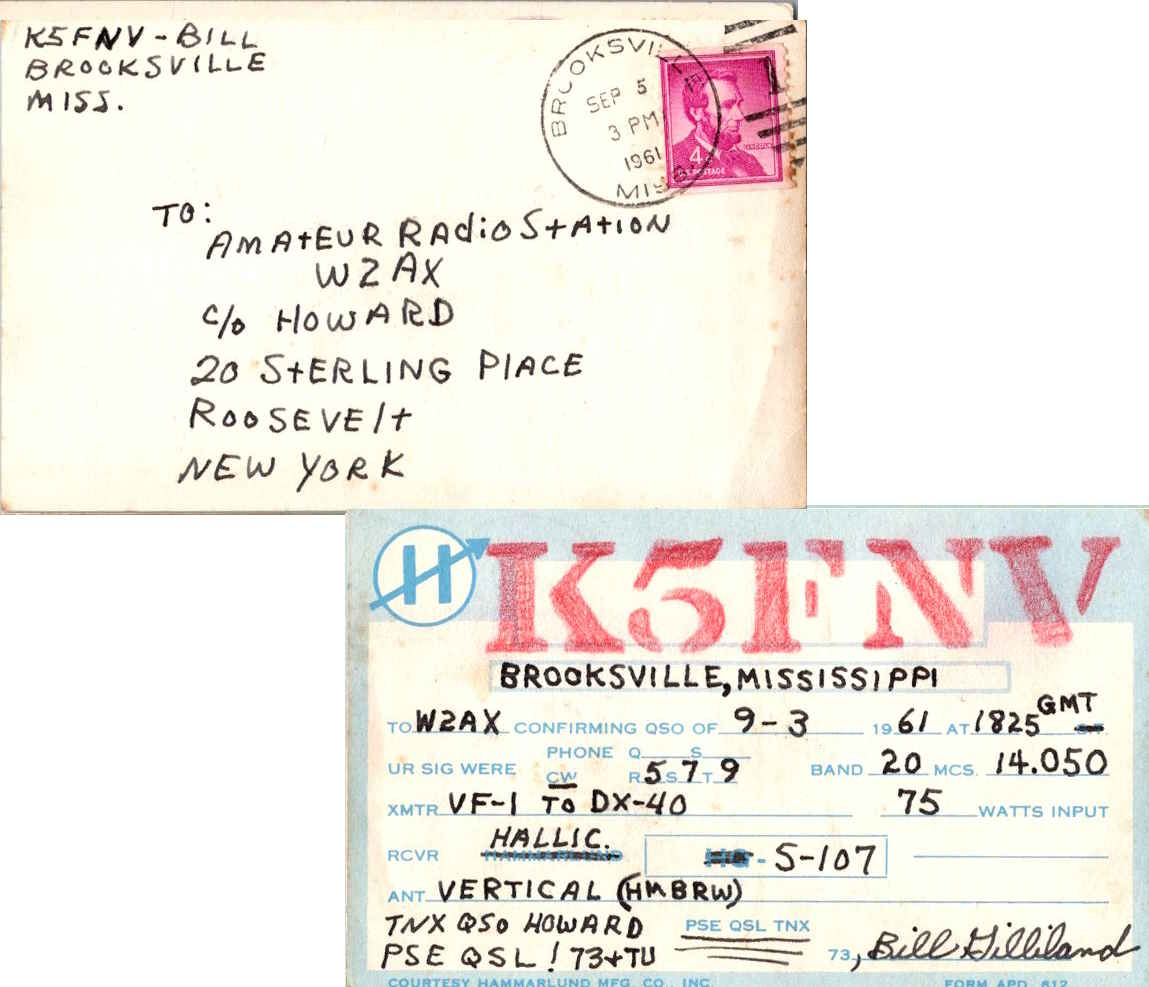 K5FNV - BILL
BROOKSVILLE
MISS.
BROOKSVILLE
SEP 5
3 PM
1961
MISS
4¢
U.S. POSTAGE
LINCOLN
TO:
AMAtEUR RAdio StAtION
W2AX
c/o HOWARD
20 StERLING PlACE
ROOSEVElt
NEW YORK
H
K5FNV
BROOKSVILLE, MISSISSIPPI
TO W2AX CONFIRMING QSO OF 9-3 1961 AT 1825 GMT
PHONE Q S
UR SIG WERE CW R 5 S 7 T 9 BAND 20 MCS. 14.050
XMTR VF-1 TO DX-40 75 WATTS INPUT
HALLIC.
RCVR HAMMARLUND HQ - S-107
ANT VERTICAL (HMBRW)
TNX QSO HOWARD PSE QSL TNX
PSE QSL! 73+TU 73, Bill Gilliland
COURTESY HAMMARLUND MFG. CO., INC. FORM APD. 612